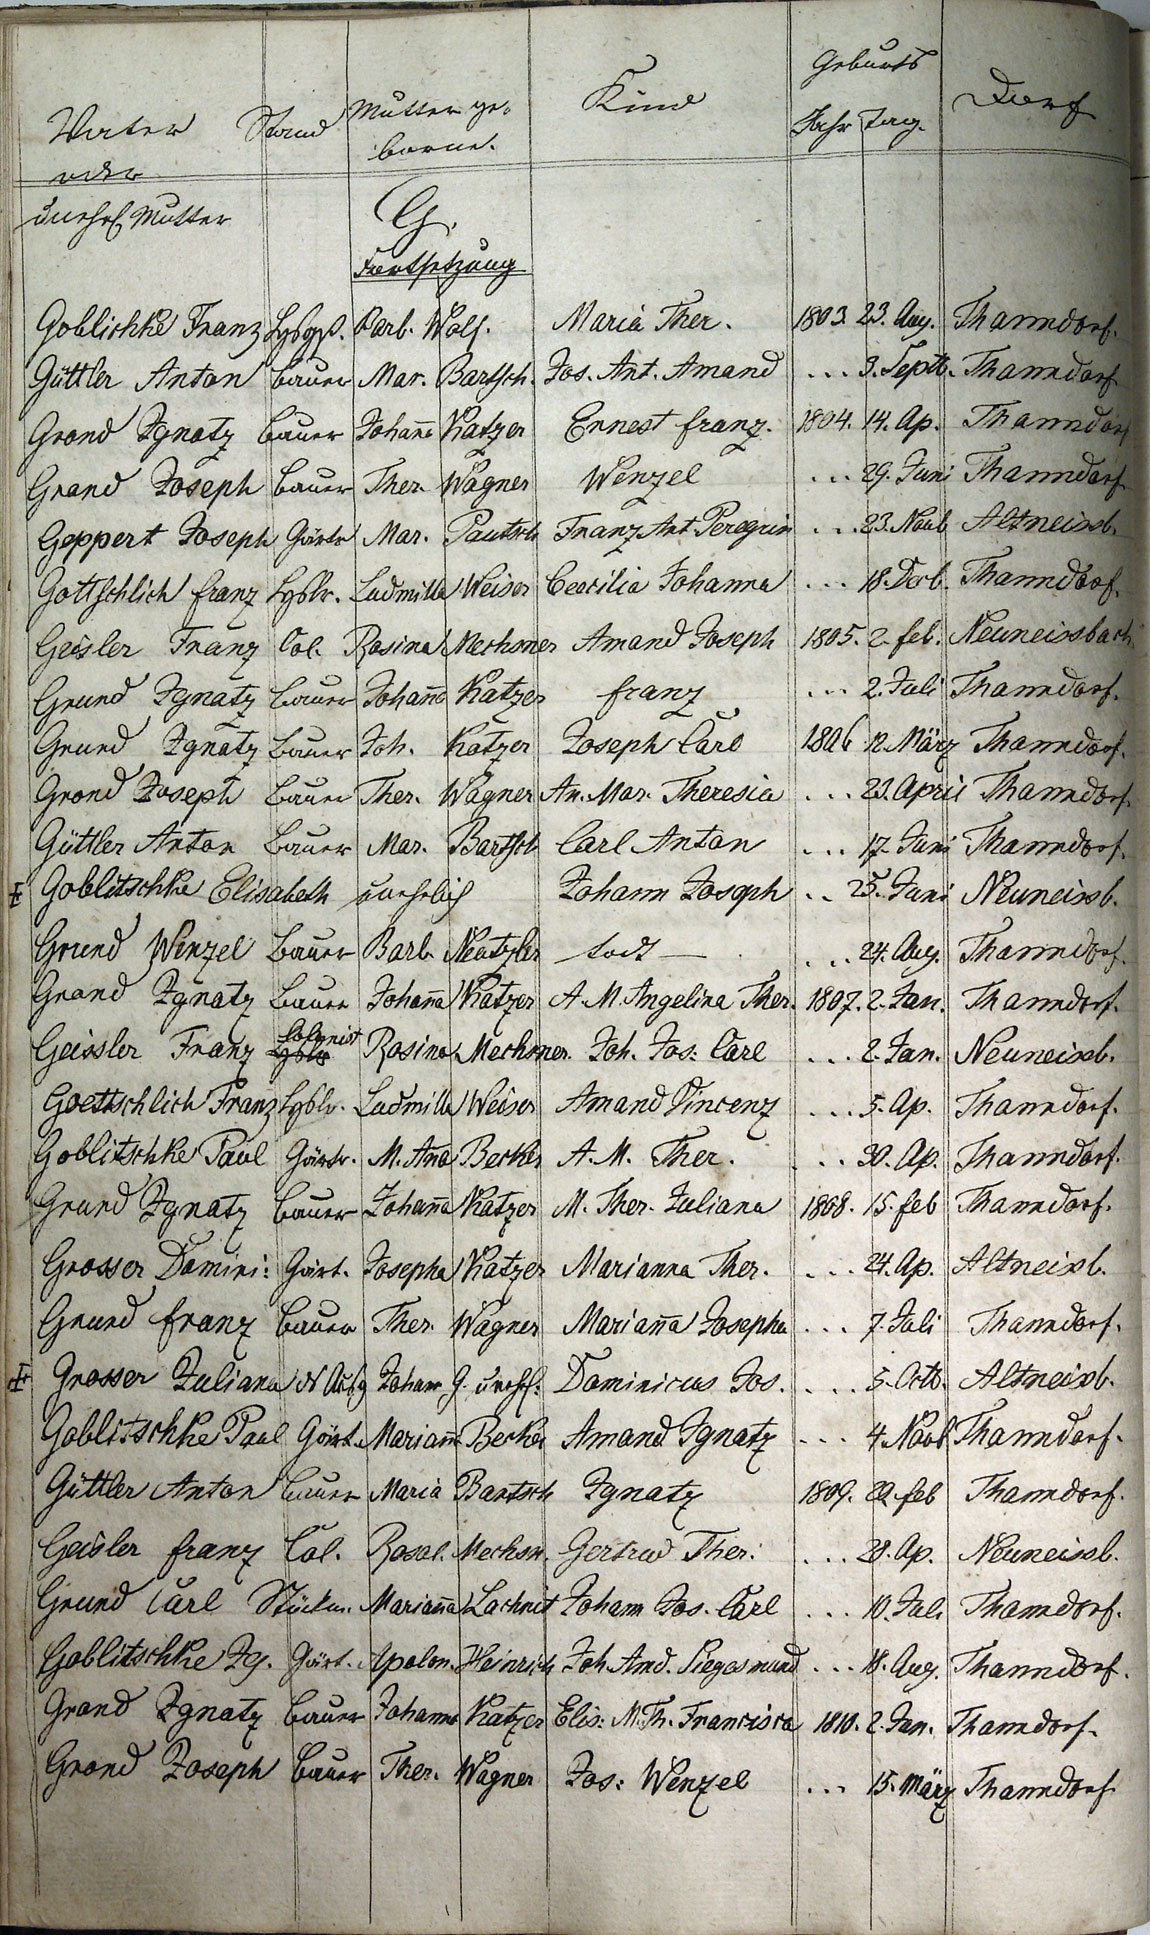 Geburts
Vater Stand Mutter ge- Kind Jahr Tag. Dorf
oder borne.
unehl. Mutter G.
Fortsetzung
Goblichke Franz Barb. Wolf. Maria Ther. 1803. 23. Aug. Thanndorf.
Güttler Anton Bauer Mar. Bartsch. Jos. Ant. Amand ... 3. Septb. Thanndorf
Grond Ignatz Bauer Johana Katzer Ernest Franz. 1804. 14. Ap. Thanndorf
Grand Joseph Bauer Ther. Wagner Wenzel ... 29. Juni Thanndorf
Geppert Joseph Gärtr Mar. Pautsch Franz Ant Peregrin ... 23. Novb Altneissb.
Gottschlich Franz Hyslr. Ludmilla Weiser Ceacilia Johanna ... 18. Decb. Thanndorf.
Geisler Franz Col. Rosina Mechsner Amand Joseph 1805. 2. feb. Neuneissbach
Grund Ignatz Bauer Johana Katzer Franz ... 2. Juli Thanndorf.
Grund Ignatz Bauer Joh. Katzer Joseph Carl 1806 12. März Thanndorf.
Grond Joseph Bauer Ther. Wagner An. Mar. Theresia ... 23. April Thanndorf.
Güttler Anton Bauer Mar. Bartsch Carl Anton ... 17. Juni Thanndorf.
Goblitschke Elisabeth unehrlich Johann Joseph .. 25. Juni Neuneissb.
Grund Wenzel Bauer Barb. Neutzler todt — ... 24. Aug. Thanndorf.
Grand Ignatz Bauer Johanna Katzer A. M. Angelina Ther. 1807. 2. Jan. Thanndorf.
Geissler Franz Colonist Rosina Mechsner. Joh. Jos: Carl ... 2. Jan. Neuneissb.
Goettschlich Franz Hyslr. Ludmilla Weiser Amand Vincenz ... 5. Ap. Thanndorf.
Goblitschke Paul Gärtr. M. Ana Becker A. M. Ther. ... 30. Ap. Thanndorf.
Grund Ignatz Bauer Johanna Katzer M. Ther. Juliana 1808. 15. feb Thanndorf.
Grosser Domini: Gärt. Josepha Katzer Marianna Ther. ... 24. Ap. Altneissb.
Grund Franz Bauer Ther. Wagner Mariana Josepha ... 7. Juli Thanndorf.
Grosser Juliana Johan G. unehl. Dominicus Jos. ... 5. Octb. Altneissb.
Goblitschke Paul Gärt. Mariann Becker Amand Ignatz ... 4. Novb Thanndorf.
Güttler Anton Bauer Maria Bartsch Ignatz 1809. feb Thanndorf.
Geisler Franz Col. Rosal. Mechsn. Gertrud Ther: ... 28. Ap. Neuneissb.
Grund Carl Stückm. Mariana Lachnit Johann Jos. Carl ... 10. Juli Thanndorf.
Goblitschke Ig. Gärt. Apolon. Heinrich Joh. Amd. Siegesmund ... 18. Aug. Thanndorf.
Grand Ignatz Bauer Johanna Katzer Elis: M. Th. Francisca 1810. 2. Jan. Thanndorf.
Grond Joseph Bauer Ther. Wagner Jos: Wenzel ... 15. März Thanndorf